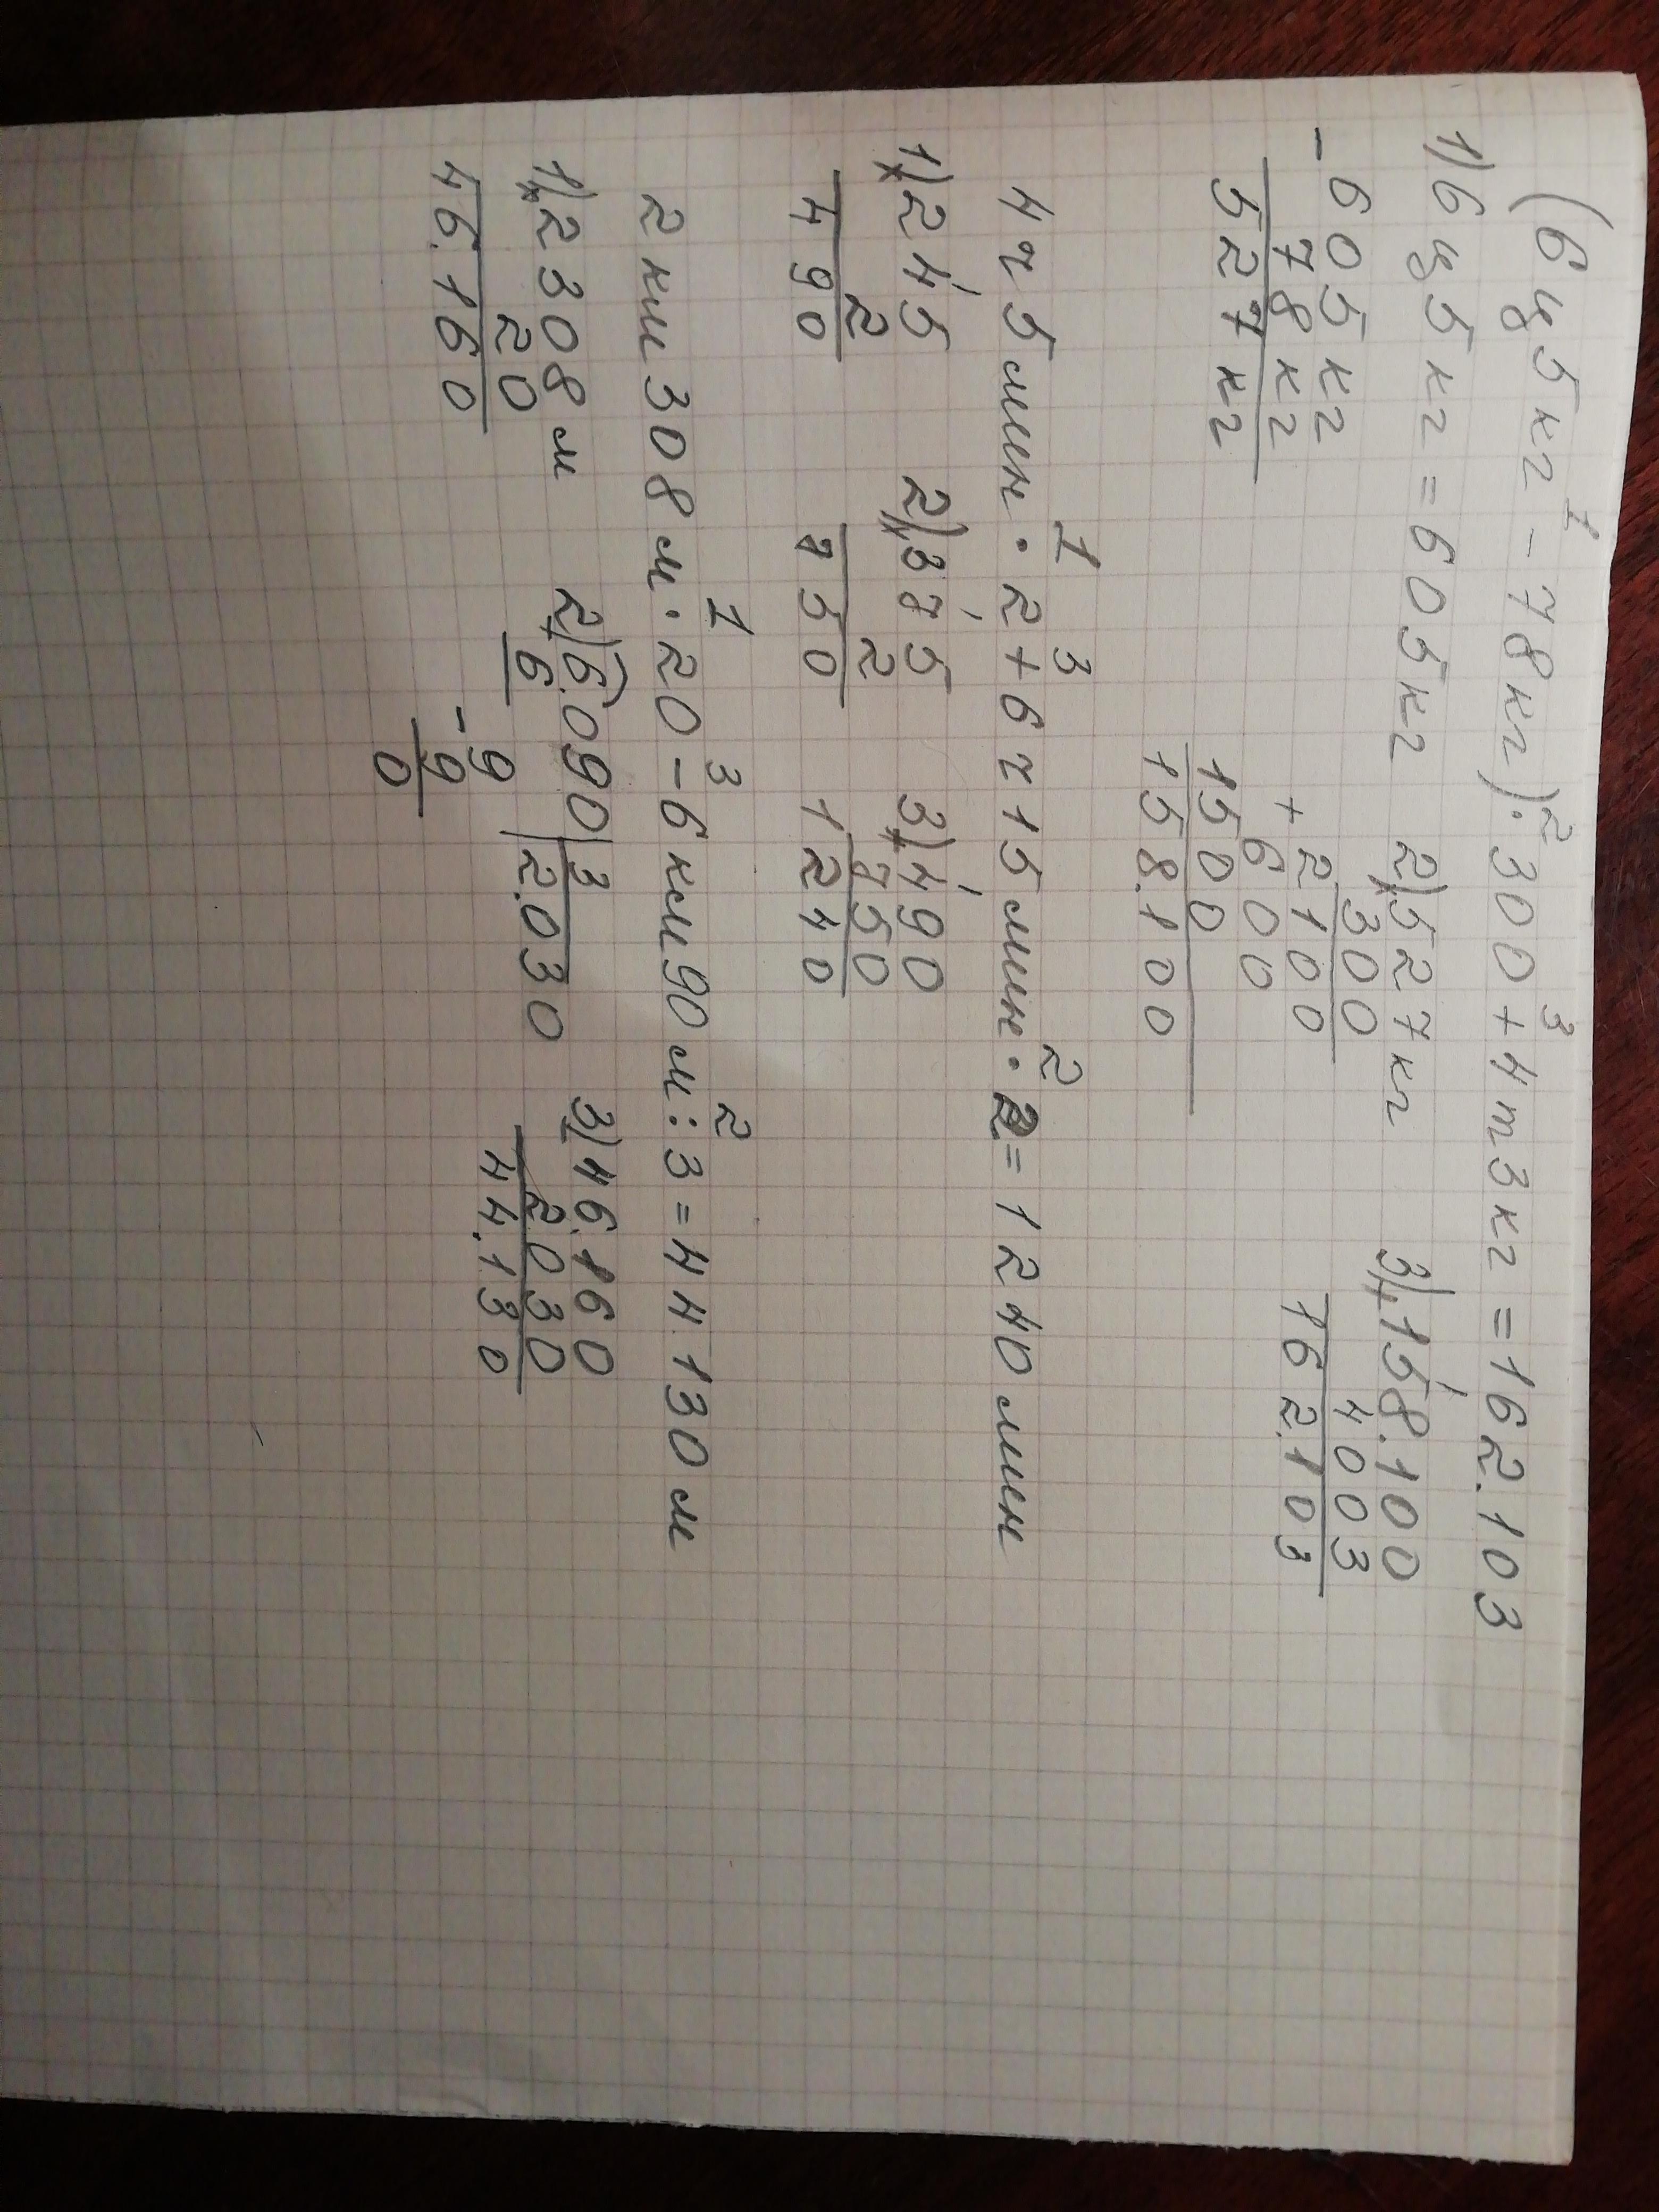 (6 ц 5 кг - 78 кг) · 300 + 4 т 3 кг = 162.103
1 2 3
1) 6 ц 5 кг = 605 кг 2) 527 кг 3) 158.100
- 605 кг × 300 + 4003
78 кг 2100 162.103
527 кг + 600
1500
158.100
1 3 2
4 ч 5 мин · 2 + 6 ч 15 мин · 2 = 1240 мин
1) 245 2) 375 3) 490
× 2 × 2 + 750
490 750 1240
1 3 2
2 км 308 м · 20 - 6 км 90 м : 3 = 44.130 м
1) 2308 м 2) 6.090 | 3 3) 46.160
× 20 - 6 2.030 - 2030
46.160 - 9 44.130
9
0